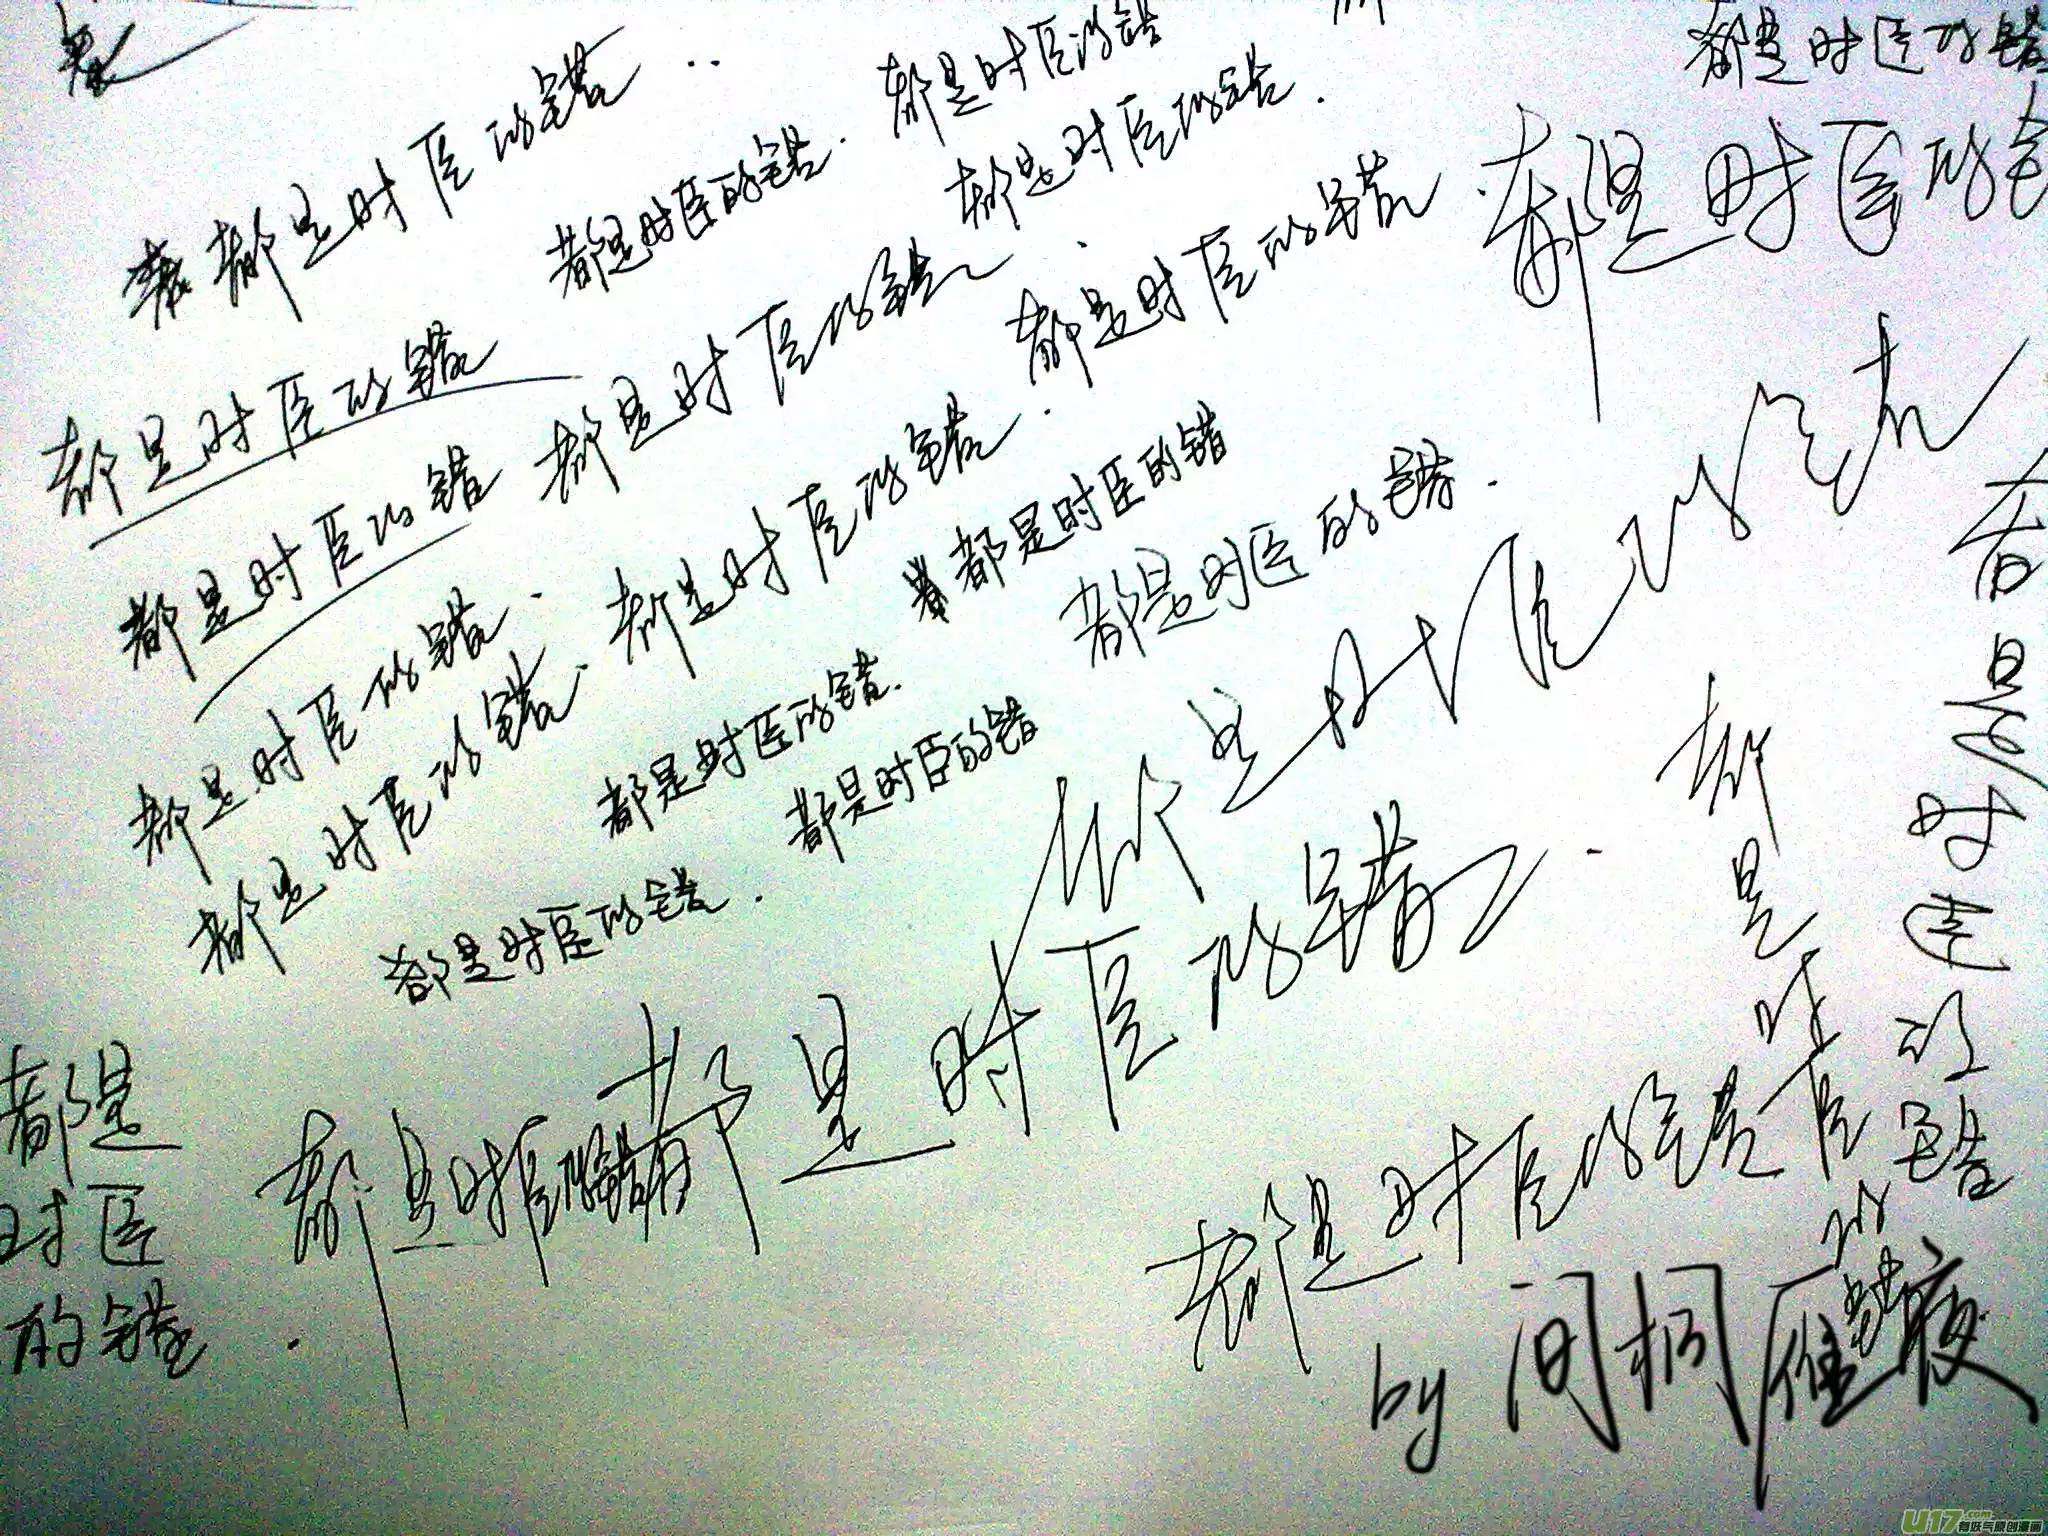 都是时臣的错
都是时臣的错
都是时臣的错..
都是时臣的错.
都是时臣的错.
都是时臣的错
都是时臣的错
都是时臣的错
都是时臣的错.
都是时臣的错
都是时臣的错
都是时臣的错.
都是时臣的错
都是时臣的错.
都是时臣的错.
都是时臣的错
都是时臣的错.
都是时臣的错.
都是时臣的错
都是时臣的错.
都是时臣的错
都是时臣的错.
都是时臣的错
都是时臣的错
都是时臣的错
都是
时臣
的错.
都是时臣的错
都是时臣的错
by 间桐雁夜
U17.com
有妖气原创漫画